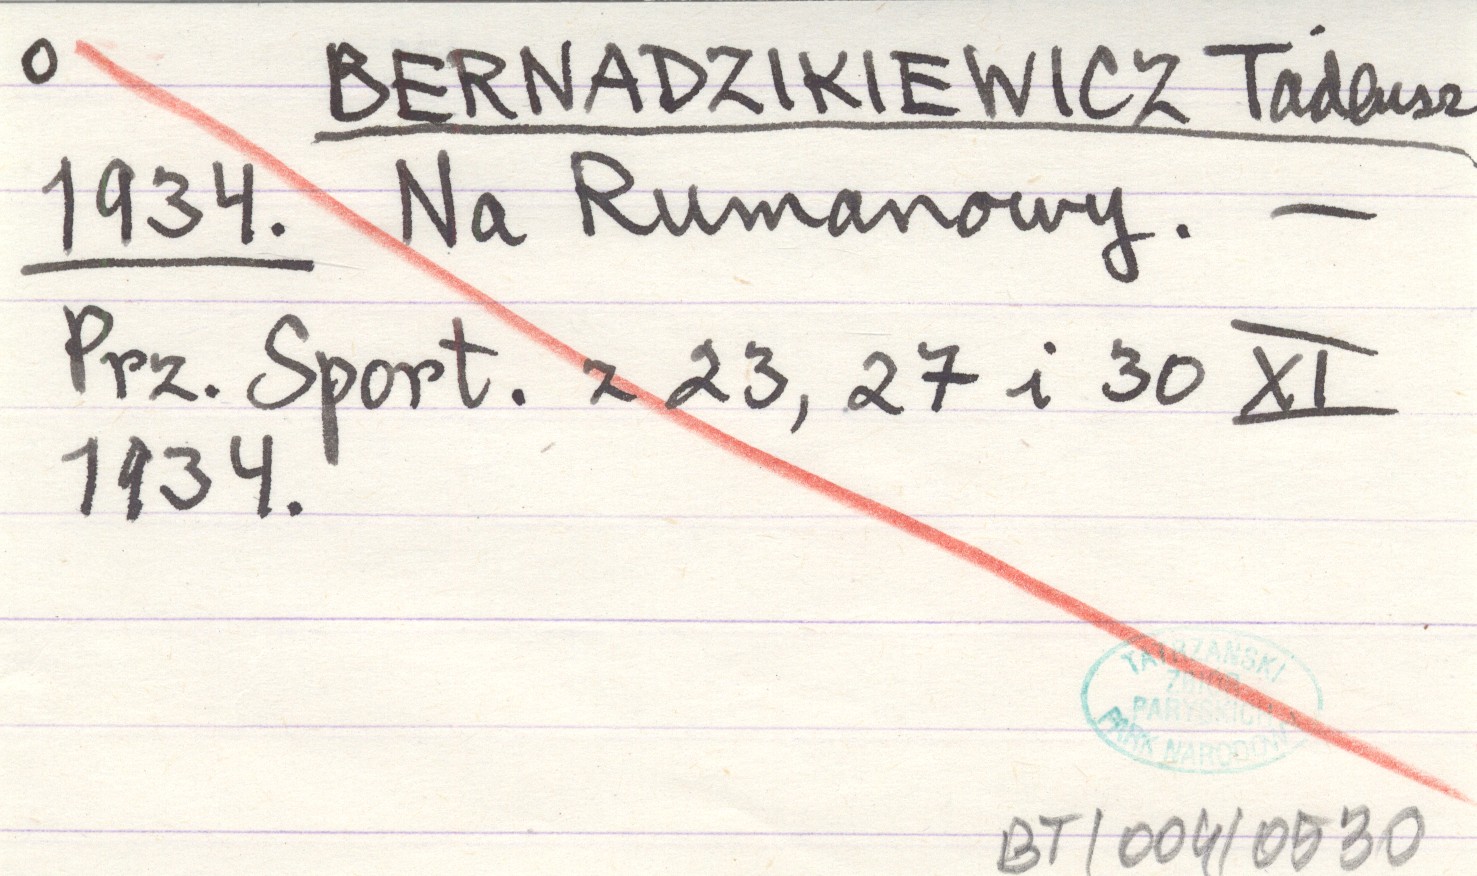 o BERNADZIKIEWICZ Tadeusz
1934. Na Rumanowy. —
Prz. Sport. z 23, 27 i 30 XI
1934.
TATRZAŃSKI
ZBIÓR
PARYSKICH
PARK NARODOWY
BT/004/0530